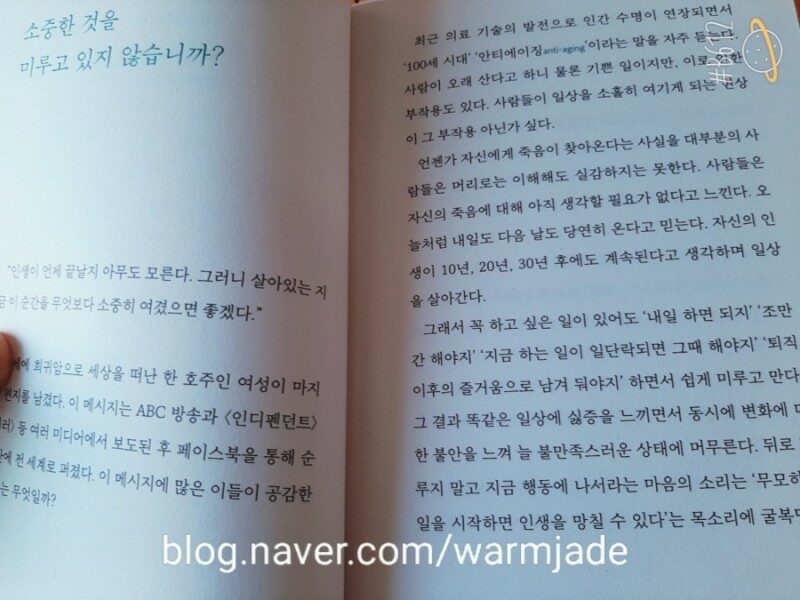 소중한 것을
미루고 있지 않습니까?
"인생이 언제 끝날지 아무도 모른다. 그러니 살아있는 지
금 이 순간을 무엇보다 소중히 여겼으면 좋겠다."
희귀암으로 세상을 떠난 한 호주인 여성이 마지
편지를 남겼다. 이 메시지는 ABC 방송과 〈인디펜던트〉
등 여러 미디어에서 보도된 후 페이스북을 통해 순
전 세계로 퍼졌다. 이 메시지에 많은 이들이 공감한
는 무엇일까?
최근 의료 기술의 발전으로 인간 수명이 연장되면서
'100세 시대' '안티에이징anti-aging'이라는 말을 자주 듣는다.
사람이 오래 산다고 하니 물론 기쁜 일이지만, 이로 인한
부작용도 있다. 사람들이 일상을 소홀히 여기게 되는 현상
이 그 부작용 아닌가 싶다.
언젠가 자신에게 죽음이 찾아온다는 사실을 대부분의 사
람들은 머리로는 이해해도 실감하지는 못한다. 사람들은
자신의 죽음에 대해 아직 생각할 필요가 없다고 느낀다. 오
늘처럼 내일도 다음 날도 당연히 온다고 믿는다. 자신의 인
생이 10년, 20년, 30년 후에도 계속된다고 생각하며 일상
을 살아간다.
그래서 꼭 하고 싶은 일이 있어도 '내일 하면 되지' '조만
간 해야지' '지금 하는 일이 일단락되면 그때 해야지' '퇴직
이후의 즐거움으로 남겨 둬야지' 하면서 쉽게 미루고 만다
그 결과 똑같은 일상에 싫증을 느끼면서 동시에 변화에 대
한 불안을 느껴 늘 불만족스러운 상태에 머무른다. 뒤로
루지 말고 지금 행동에 나서라는 마음의 소리는 '무모하
일을 시작하면 인생을 망칠 수 있다'는 목소리에 굴복
blog.naver.com/warmjade